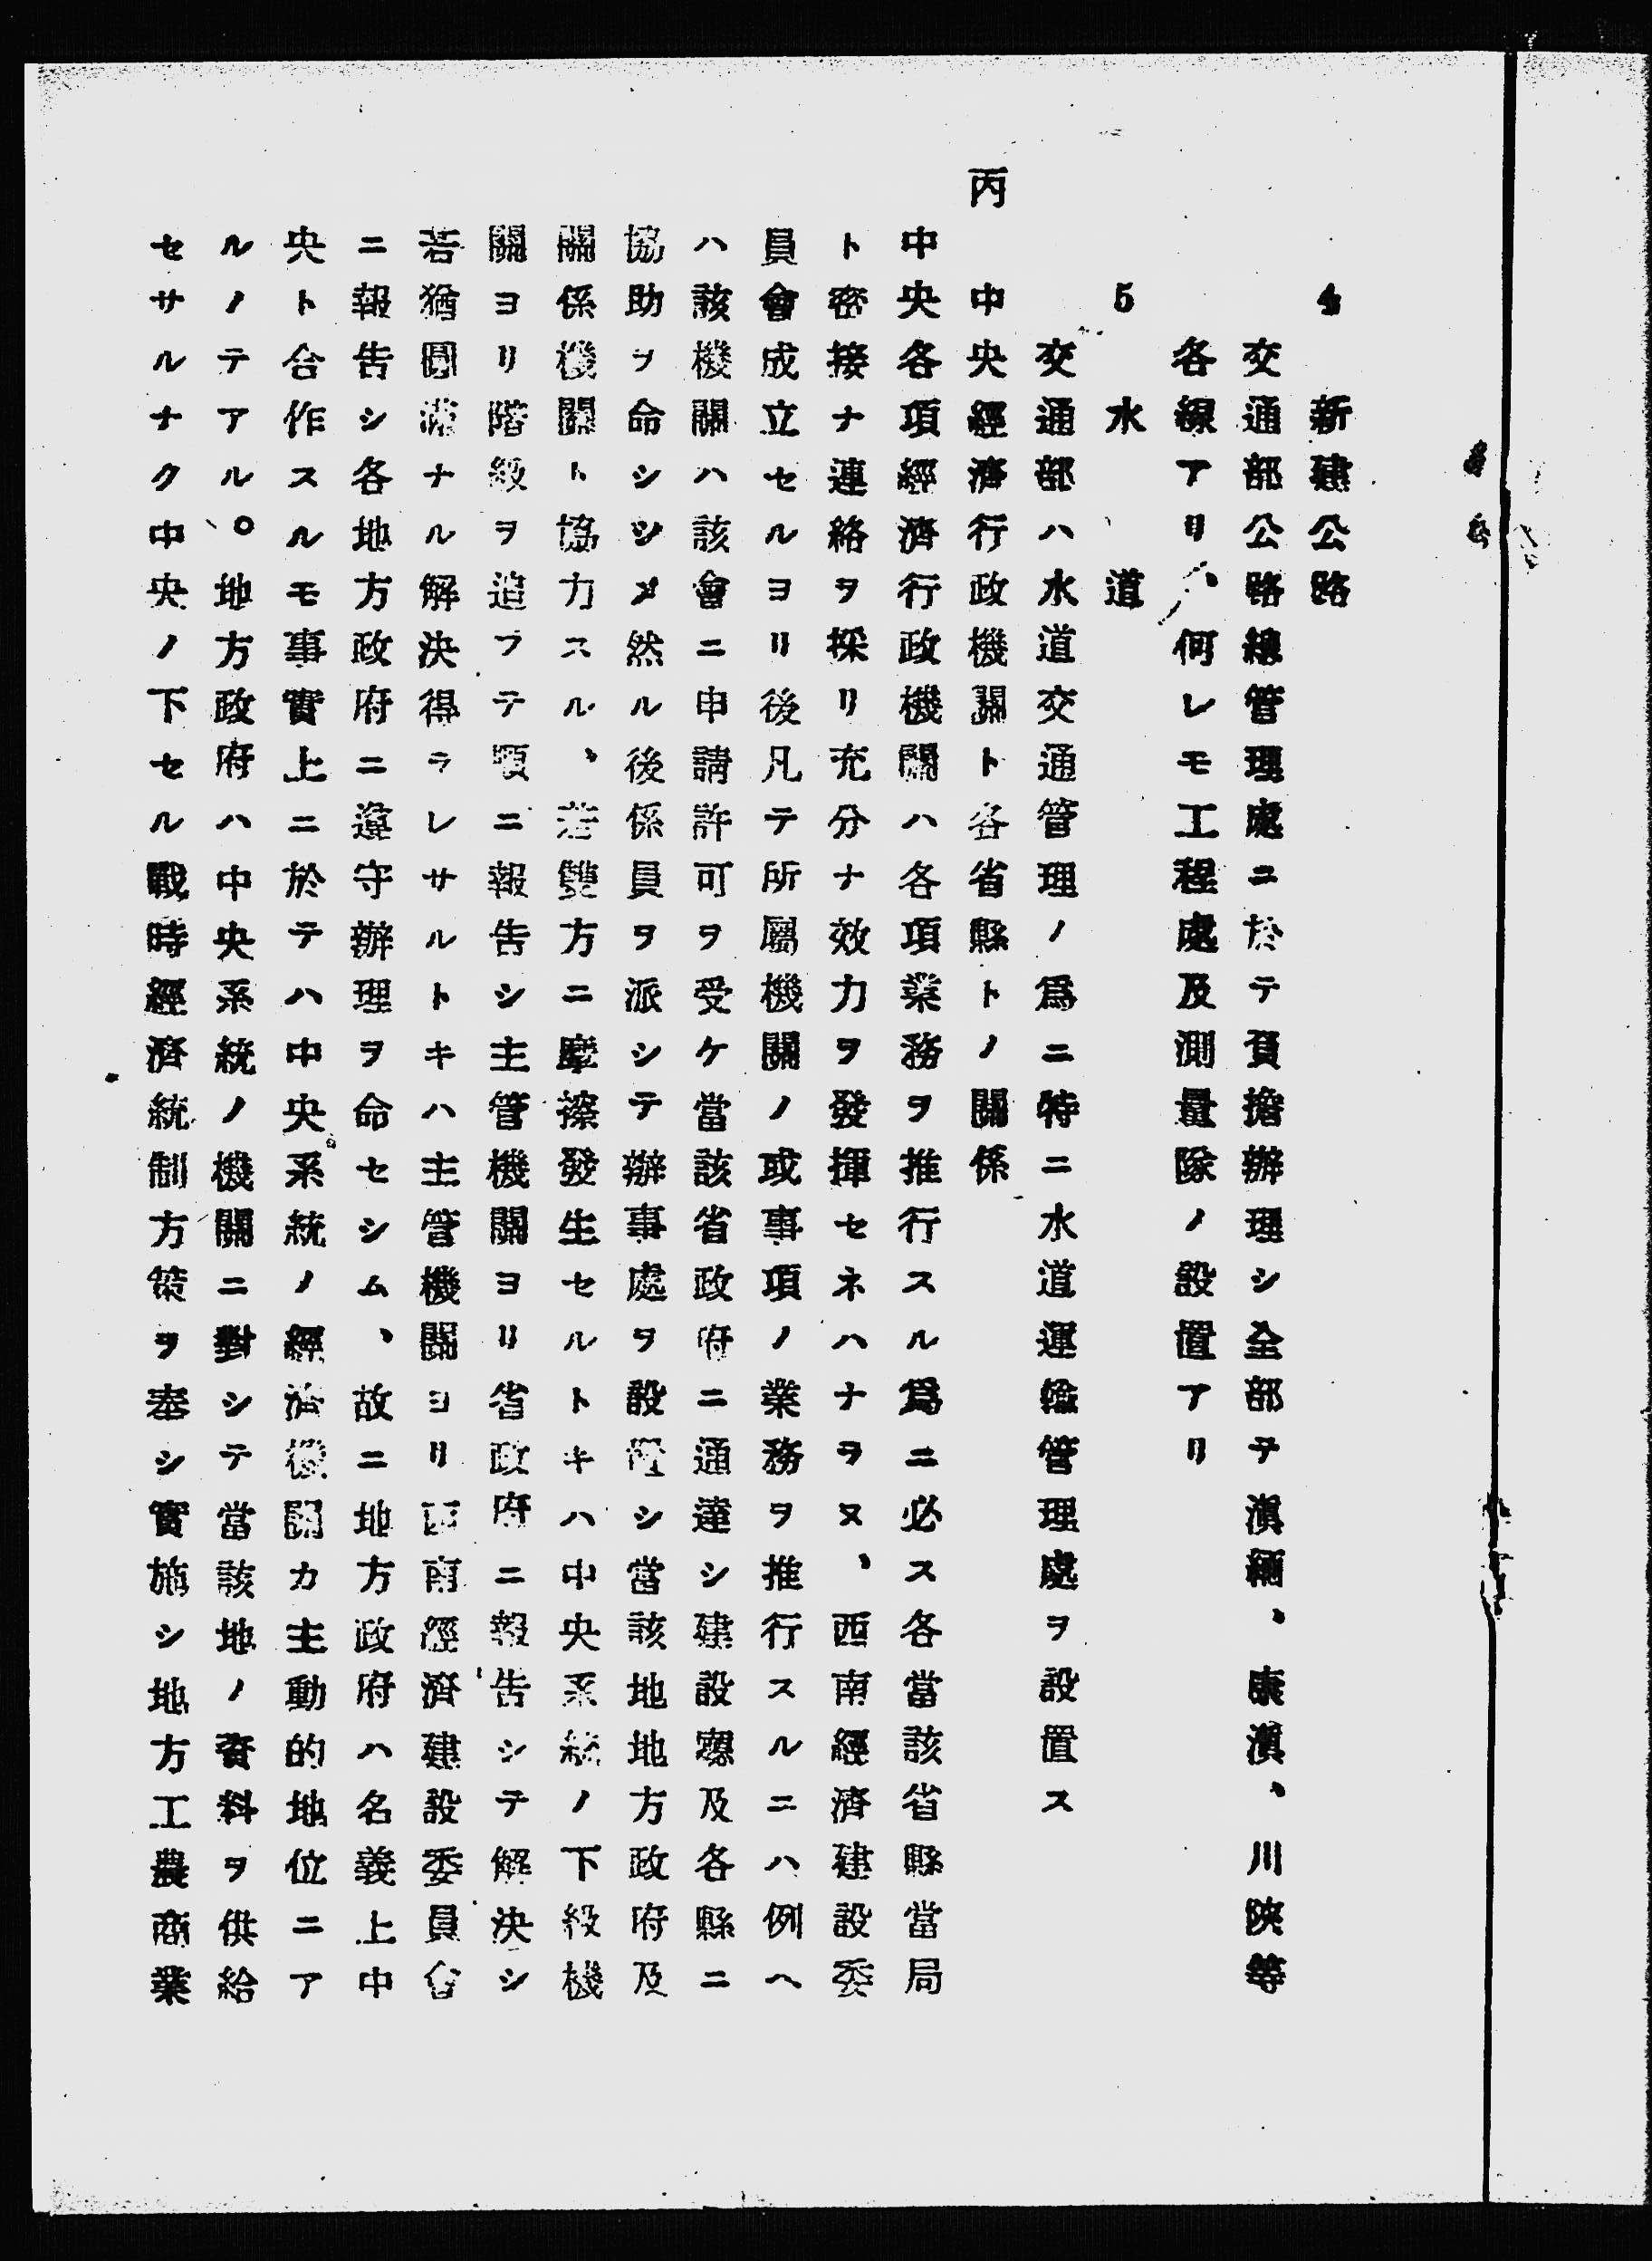 4 新建公路
交通部公路總管理處ニ於テ負擔辦理シ全部テ滇緬、康滇、川陜等
各線アリ、何レモ工程處及測量隊ノ設置アリ
5 水道
交通部ハ水道交通管理ノ爲ニ特ニ水道運輸管理處ヲ設置ス
丙 中央經濟行政機關ト各省縣トノ關係
中央各項經濟行政機關ハ各項業務ヲ推行スル爲ニ必ス各當該省縣當局
ト密接ナ連絡ヲ採リ充分ナ效力ヲ發揮セネハナラヌ、西南經濟建設委
員會成立セルヨリ後凡テ所屬機關ノ或事項ノ業務ヲ推行スルニハ例ヘ
ハ該機關ハ該會ニ申請許可ヲ受ケ當該省政府ニ通達シ建設廳及各縣ニ
協助ヲ命シシメ然ル後係員ヲ派シテ辦事處ヲ設置シ當該地地方政府及
關係機關ト協力スル、若雙方ニ摩擦發生セルトキハ中央系統ノ下級機
關ヨリ階級ヲ追フテ順ニ報告シ主管機關ヨリ省政府ニ報告シテ解決シ
若猶圓滿ナル解決得ラレサルトキハ主管機關ヨリ西南經濟建設委員會
ニ報告シ各地方政府ニ遵守辦理ヲ命セシム、故ニ地方政府ハ名義上中
央ト合作スルモ事實上ニ於テハ中央系統ノ經濟機關カ主動的地位ニア
ルノテアル。地方政府ハ中央系統ノ機關ニ對シテ當該地ノ資料ヲ供給
セサルナク中央ノ下セル戰時經濟統制方策ヲ奉シ實施シ地方工農商業